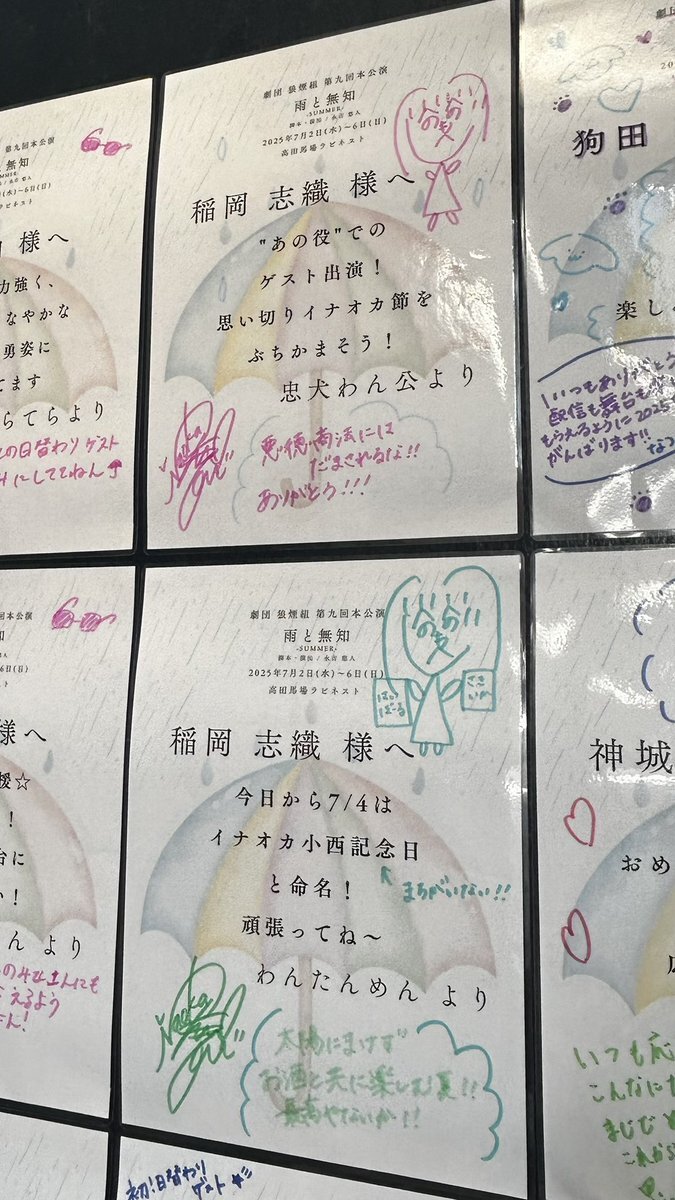 第九回本公演
無知
(水)〜6日(日)
ラビネスト
様へ
力強く、
なやかな
勇姿に
てます
らてらより
の日替わりゲスト
みにしててねん
劇団 狼煙組 第九回本公演
雨と無知
-SUMMER-
脚本・演出 / 永吉 悠人
2025年7月2日(水)〜6日(日)
高田馬場ラビネスト
稲岡 志織 様へ
"あの役"での
ゲスト出演!
思い切りイナオカ節を
ぶちかまそう!
忠犬わん公より
悪徳商法には
だまされるな!!
ありがとう!!!
劇団
狗田
楽し
いつもありがとう
配信も舞台も
もらえるように2025
がんばります!!
なつ
第九回本公演
無知
(水)〜6日(日)
ラビネスト
様へ
援☆
!
台に
い!
ん より
劇団 狼煙組 第九回本公演
雨と無知
-SUMMER-
脚本・演出 / 永吉 悠人
2025年7月2日(水)〜6日(日)
高田馬場ラビネスト
はい
ぼーる
さき
いか
稲岡 志織 様へ
今日から7/4は
イナオカ小西記念日
と命名!
まちがいない!!
頑張ってね〜
わんたんめん より
太陽にまけず
お酒と共に楽しむ夏!!
最高やないか!!
神城
おめ
いつも応
こんなにた
まじでめ
これから
初!日替わり
ゲスト